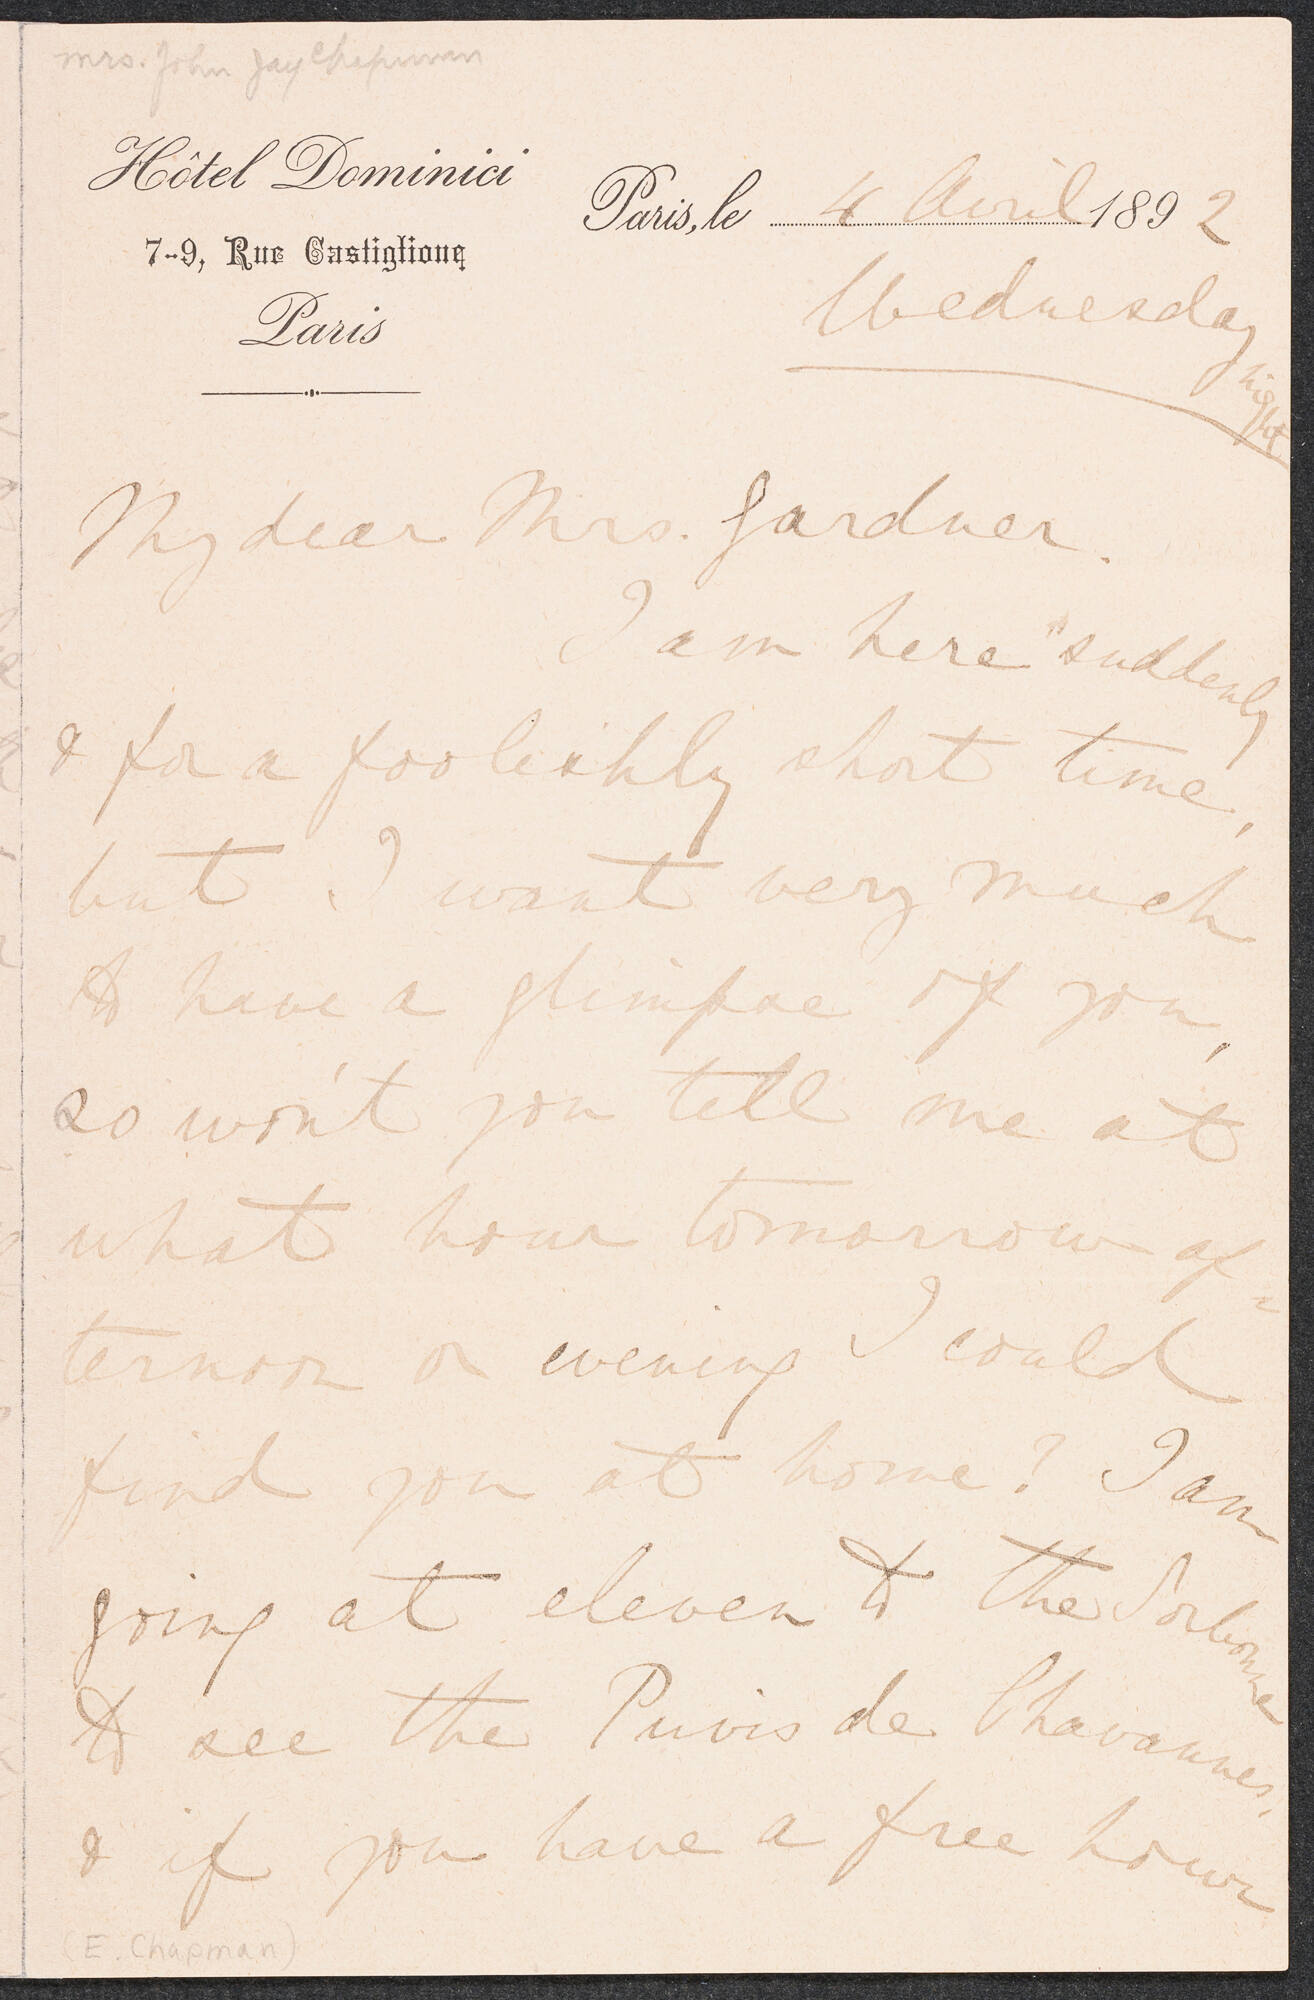 mrs. John Jay Chapman
Hôtel Dominici
7-9, Rue Castiglione
Paris
Paris, le 4 Avril 1892
Wednesday night
My dear Mrs. Gardner.
I am here "suddenly
& for a foolishly short time,
but I want very much
to have a glimpse of you,
so won't you tell me at
what hour tomorrow af=
ternoon or evening I could
find you at home? I am
going at eleven to the Sorbonne
to see the Puvis de Chavannes,
& if you have a free hour
(E. Chapman)